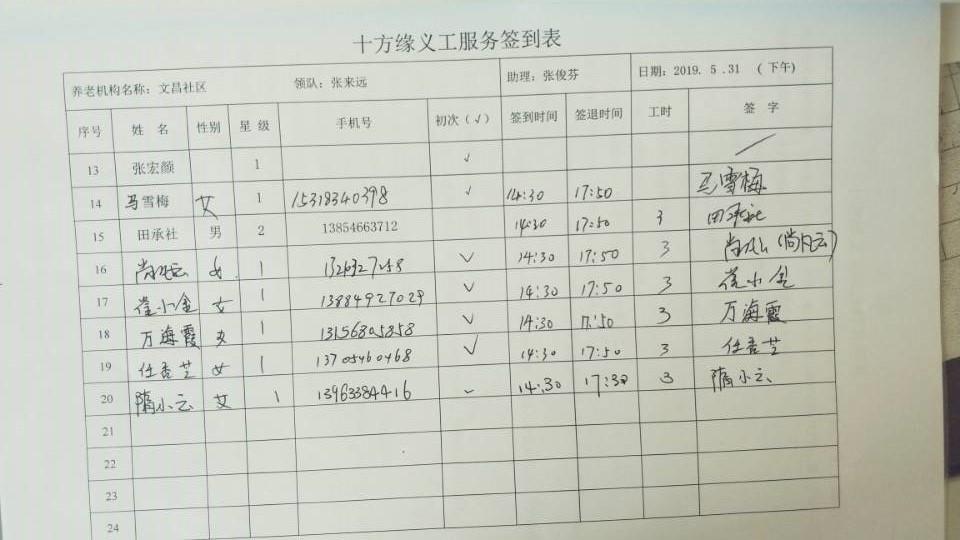 十方缘义工服务签到表
养老机构名称：文昌社区 领队：张来远 助理：张俊芬 日期：2019. 5 .31 （下午）
序号 姓 名 性别 星 级 手机号 初次（√） 签到时间 签退时间 工时 签 字
13 张宏颜 1 √
14 马雪梅 女 1 15318340398 √ 14:30 17:50 马雪梅
15 田承社 男 2 13854663712 14:30 17:50 3 田承社
16 女 1 √ 14:30 17:50 3
17 崔小金 女 1 13884927029 √ 14:30 17:50 3 崔小金
18 万海霞 女 1 13156805858 √ 14:30 17:50 3 万海霞
19 任杏芝 女 1 13705460468 √ 14:30 17:50 3 任杏芝
20 隋小云 女 1 13963384416 14:30 17:30 3 隋小云
21
22
23
24